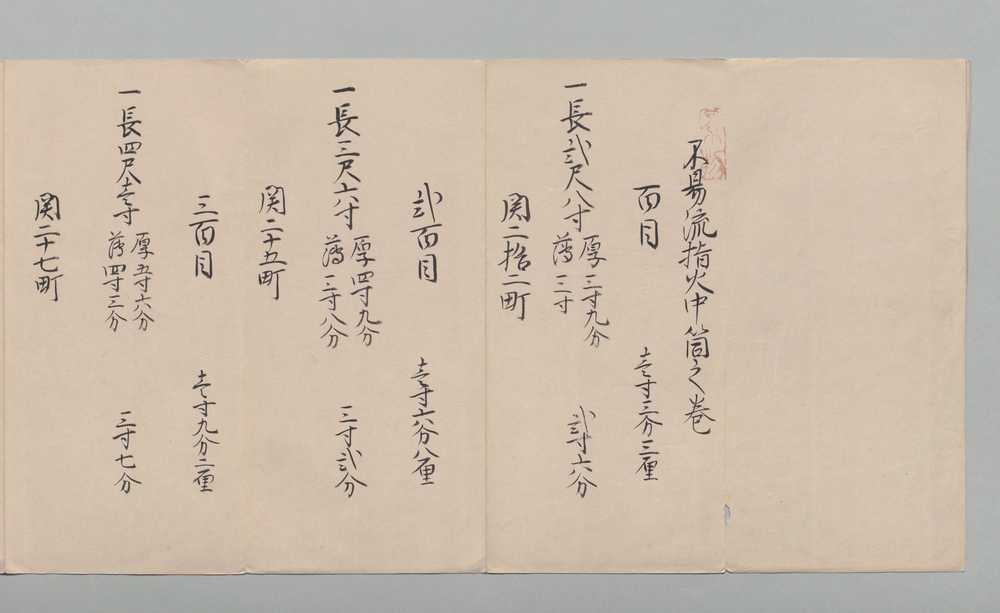 不易流指火中筒之巻
百目 壱寸三分三厘
一長弐尺八寸 厚三寸九分 薄三寸 弐寸六分
関二拾二町
弐百目 壱寸六分八厘
一長三尺六寸 厚四寸九分 薄三寸八分 三寸弐分
関二十五町
三百目 壱寸九分二厘
一長四尺壱寸 厚五寸六分 薄四寸三分 三寸七分
関二十七町